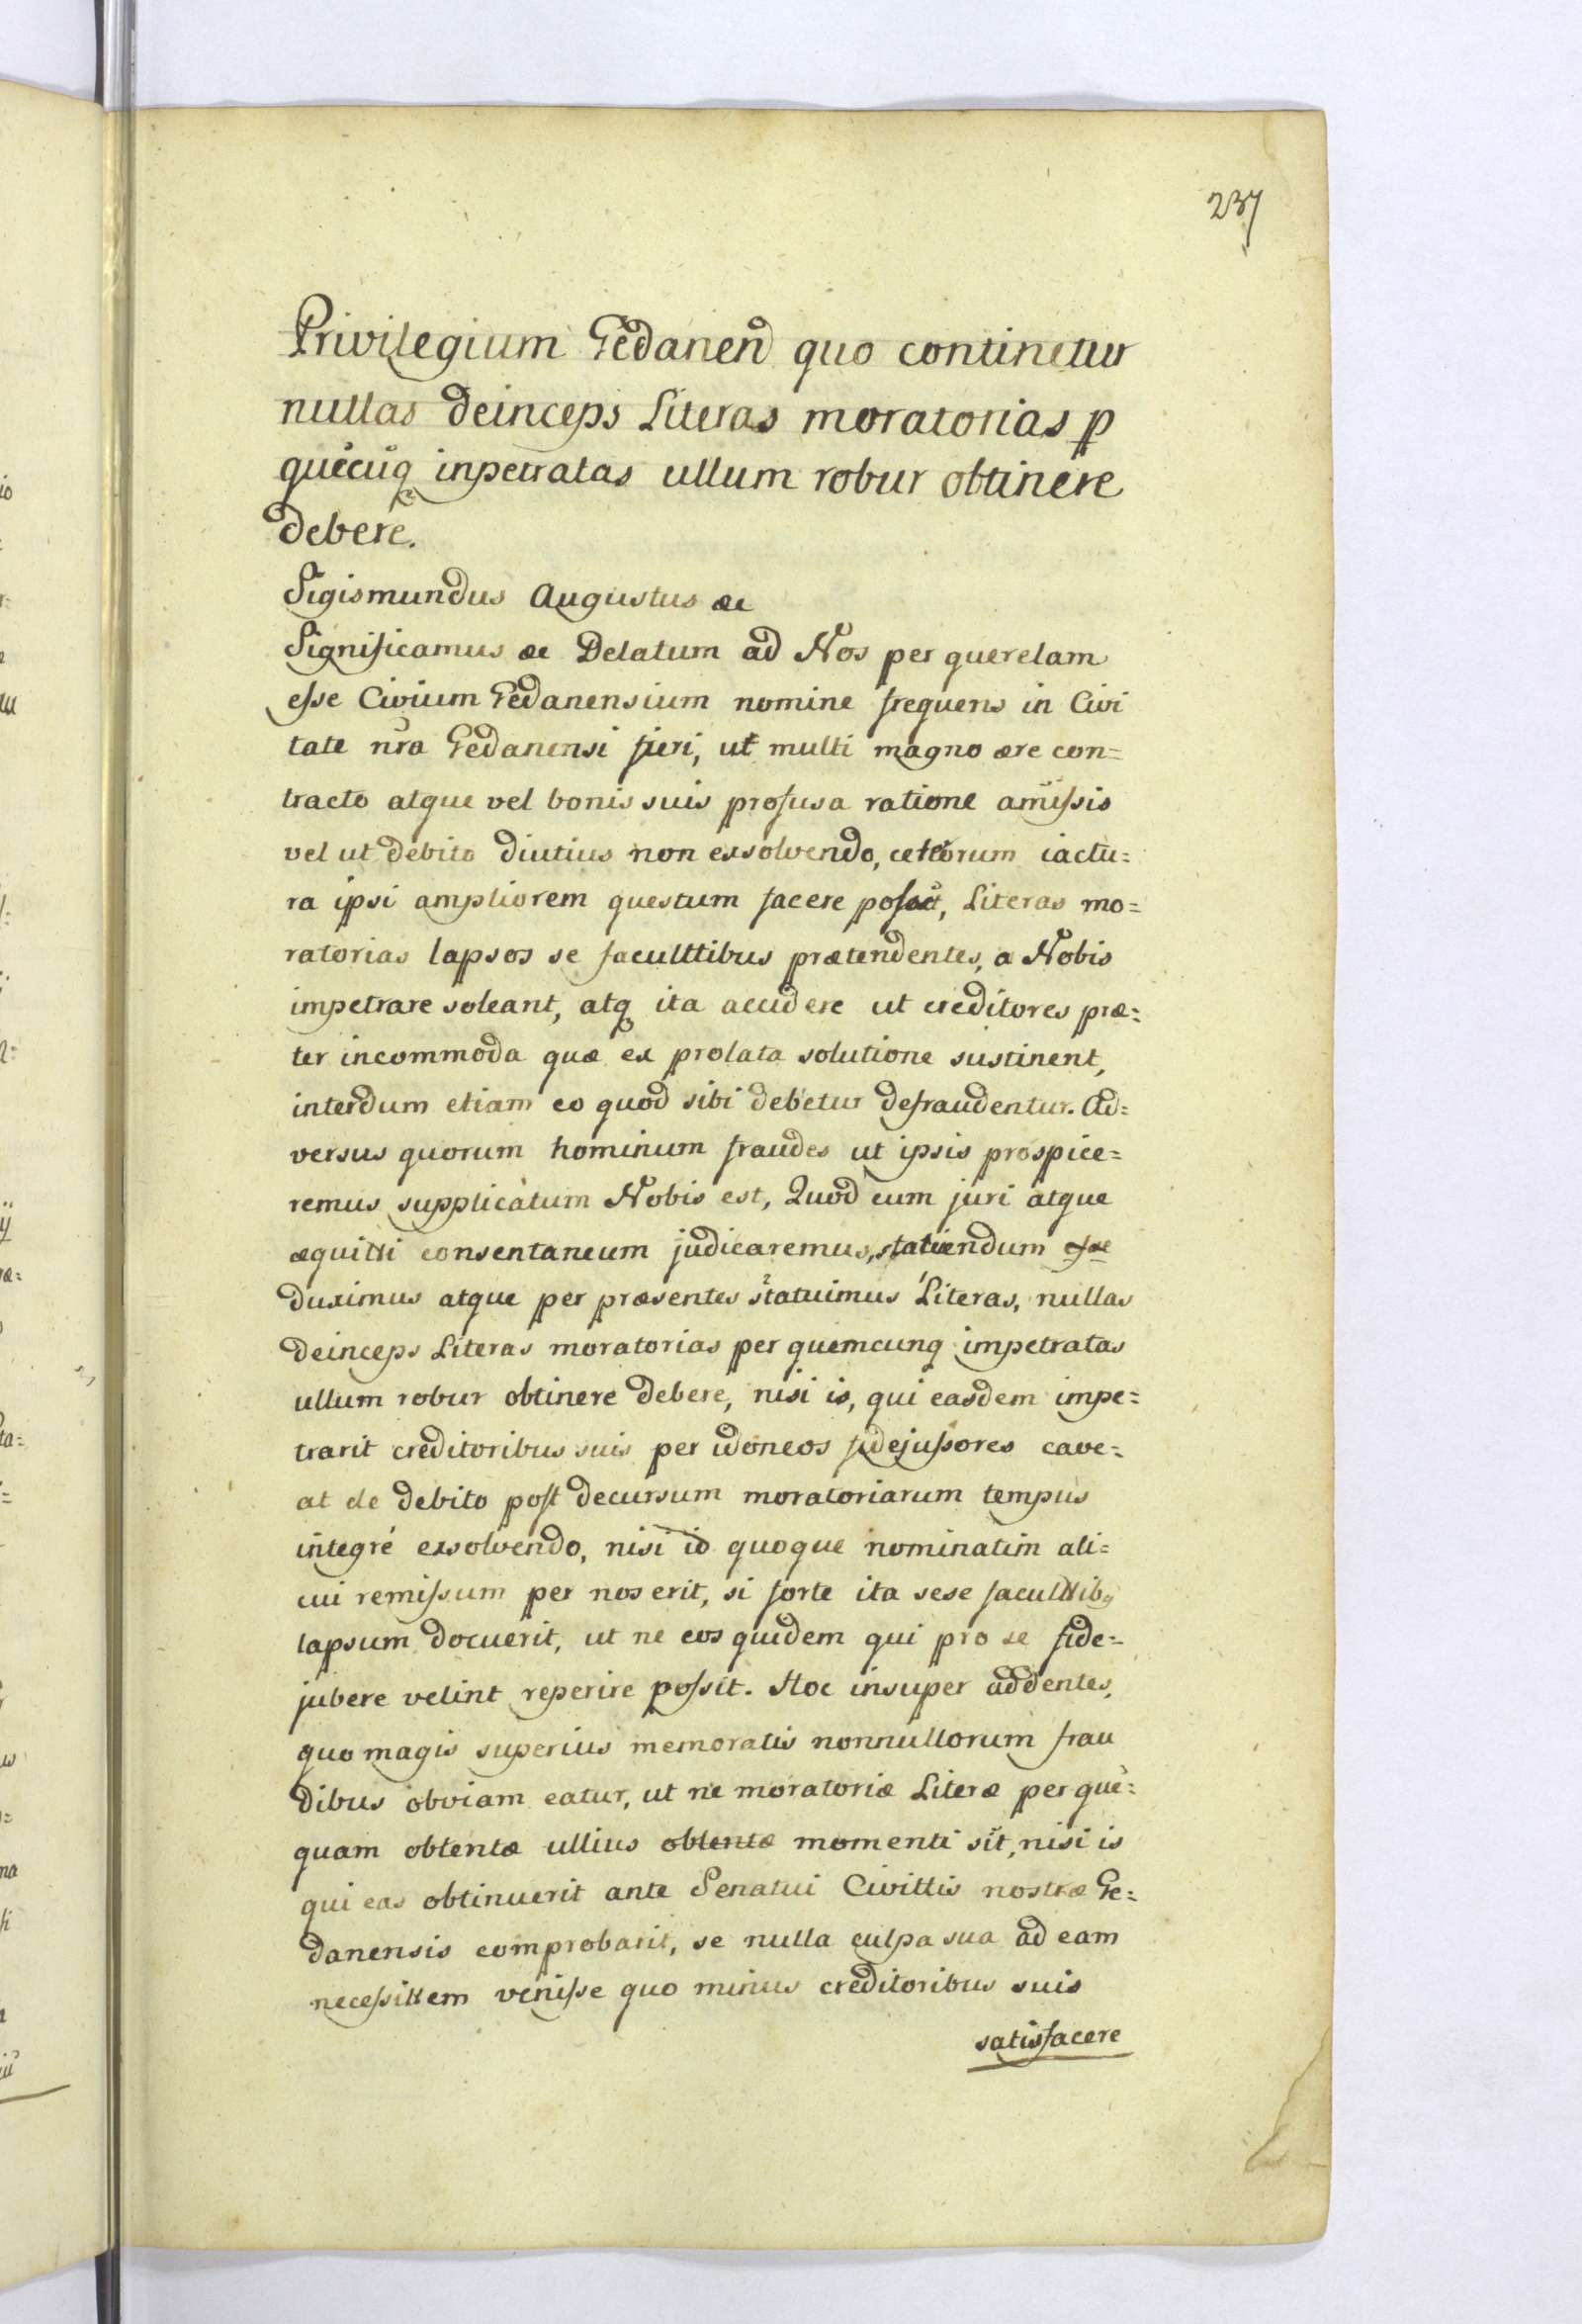 237
Privilegium Gedanen quo continetur
nullas deinceps Literas moratorias p
quēcūq inpetratas ullum robur obtinere
debere.
Sigismundus Augustus æc
Significamus æc Delatum ad Nos per querelam
esse Civium Gedanensium nomine frequens in Civi
tate nr̄a Gedanensi fieri, ut multi magno ære con=
tracto atque vel bonis suis profusa ratione amissis
vel ut debito diutius non exsolvendo, ceterorum iactu=
ra ipsi ampliorem questum facere possēt, Literas mo=
ratorias lapsos se faculttibus prætendentes, a Nobis
impetrare soleant, atq ita accidere ut creditores præ=
ter incommoda quæ ex prolata solutione sustinent,
interdum etiam eo quod sibi debetur defraudentur. Ad=
versus quorum hominum fraudes ut ipsis prospice=
remus supplicàtum Nobis est, Quod cum juri atque
æquitti consentaneum judicaremus, statuendum esse
duximus atque per præsentes statuimus Literas, nullas
deinceps Literas moratorias per quemcunq impetratas
ullum robur obtinere debere, nisi is, qui easdem impe=
trarit creditoribus suis per idoneos fidejussores cave=
at de debito post decursum moratoriarum tempus
integré exsolvendo, nisi id quoque nominatim ali=
cui remissum per nos erit, si forte ita sese facultibq
lapsum docuerit, ut ne eos quidem qui pro se fide=
jubere velint reperire possit. Hoc insuper addentes,
quo magis superius memoratis nonnullorum frau
dibus obviam eatur, ut ne moratoriæ Literæ per quē=
quam obtentæ ullius obtentæ momenti sīt, nisi is
qui eas obtinuerit ante Senatui Civittis nostræ Ge=
danensis comprobarit, se nulla culpa sua ad eam
necessittem venisse quo minus creditoribus suis
satisfacere